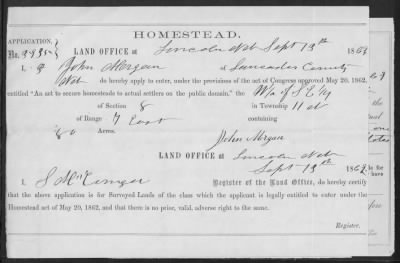 HOMESTEAD.
APPLICATION,
No. 3935
LAND OFFICE at Lincoln Neb Sept 13th 1869
I, John Morgan of Lancaster County
Neb do hereby apply to enter, under the provisions of the act of Congress approved May 20, 1862,
entitled "An act to secure homesteads to actual settlers on the public domain," the W/2 of S E/4
of Section 8 in Township 11 N
of Range 7 East containing
80 Acres.
John Morgan
LAND OFFICE at Lincoln Neb
Sept 13th 1869
I, Register of the Land Office, do hereby certify
that the above application is for Surveyed Lands of the class which the applicant is legally entitled to enter under the
Homestead act of May 20, 1862, and that there is no prior, valid, adverse right to the same.
Register.